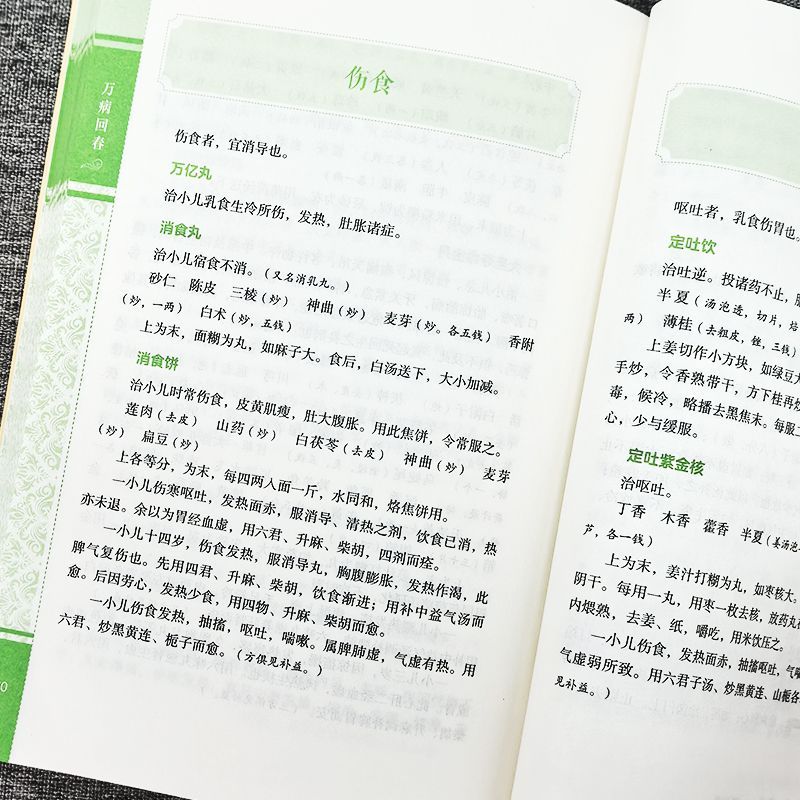 万病回春
伤食
伤食者，宜消导也。
万亿丸
治小儿乳食生冷所伤，发热，肚胀诸症。
消食丸
治小儿宿食不消。（又名消乳丸。）
砂仁 陈皮 三棱（炒） 神曲（炒） 麦芽（炒。各五钱） 香附
（炒，一两） 白术（炒，五钱）
上为末，面糊为丸，如麻子大。食后，白汤送下，大小加减。
消食饼
治小儿时常伤食，皮黄肌瘦，肚大腹胀。用此焦饼，令常服之。
莲肉（去皮） 山药（炒） 白茯苓（去皮） 神曲（炒） 麦芽
（炒） 扁豆（炒）
上各等分，为末，每四两入面一斤，水同和，烙焦饼用。
一小儿伤寒呕吐，发热面赤，服消导、清热之剂，饮食已消，热
亦未退。余以为胃经血虚，用六君、升麻、柴胡，四剂而痊。
一小儿十四岁，伤食发热，服消导丸，胸腹膨胀，发热作渴，此
脾气复伤也。先用四君、升麻、柴胡，饮食渐进；用补中益气汤而
愈。后因劳心，发热少食，用四物、升麻、柴胡而愈。
一小儿伤食发热，抽搐，呕吐，喘嗽。属脾肺虚，气虚有热。用
六君、炒黑黄连、栀子而愈。（方俱见补益。）
0
呕吐者，乳食伤胃也。
定吐饮
治吐逆。投诸药不止，
半夏（汤泡透，切片，焙
两） 薄桂（去粗皮，锉，三钱）
上姜切作小方块，如绿豆大
手炒，令香熟带干，方下桂再炒
毒，候冷，略播去黑焦末。每服
心，少与缓服。
定吐紫金核
治呕吐。
丁香 木香 藿香 半夏（姜汤泡
芦，各一钱）
上为末，姜汁打糊为丸，如枣核大。
阴干。每用一丸，用枣一枚去核，放药丸
内煨熟，去姜、纸，嚼吃，用米饮压之。
一小儿伤食，发热面赤，抽搐呕吐，气喘
气虚弱所致。用六君子汤、炒黑黄连、山栀各
见补益。）